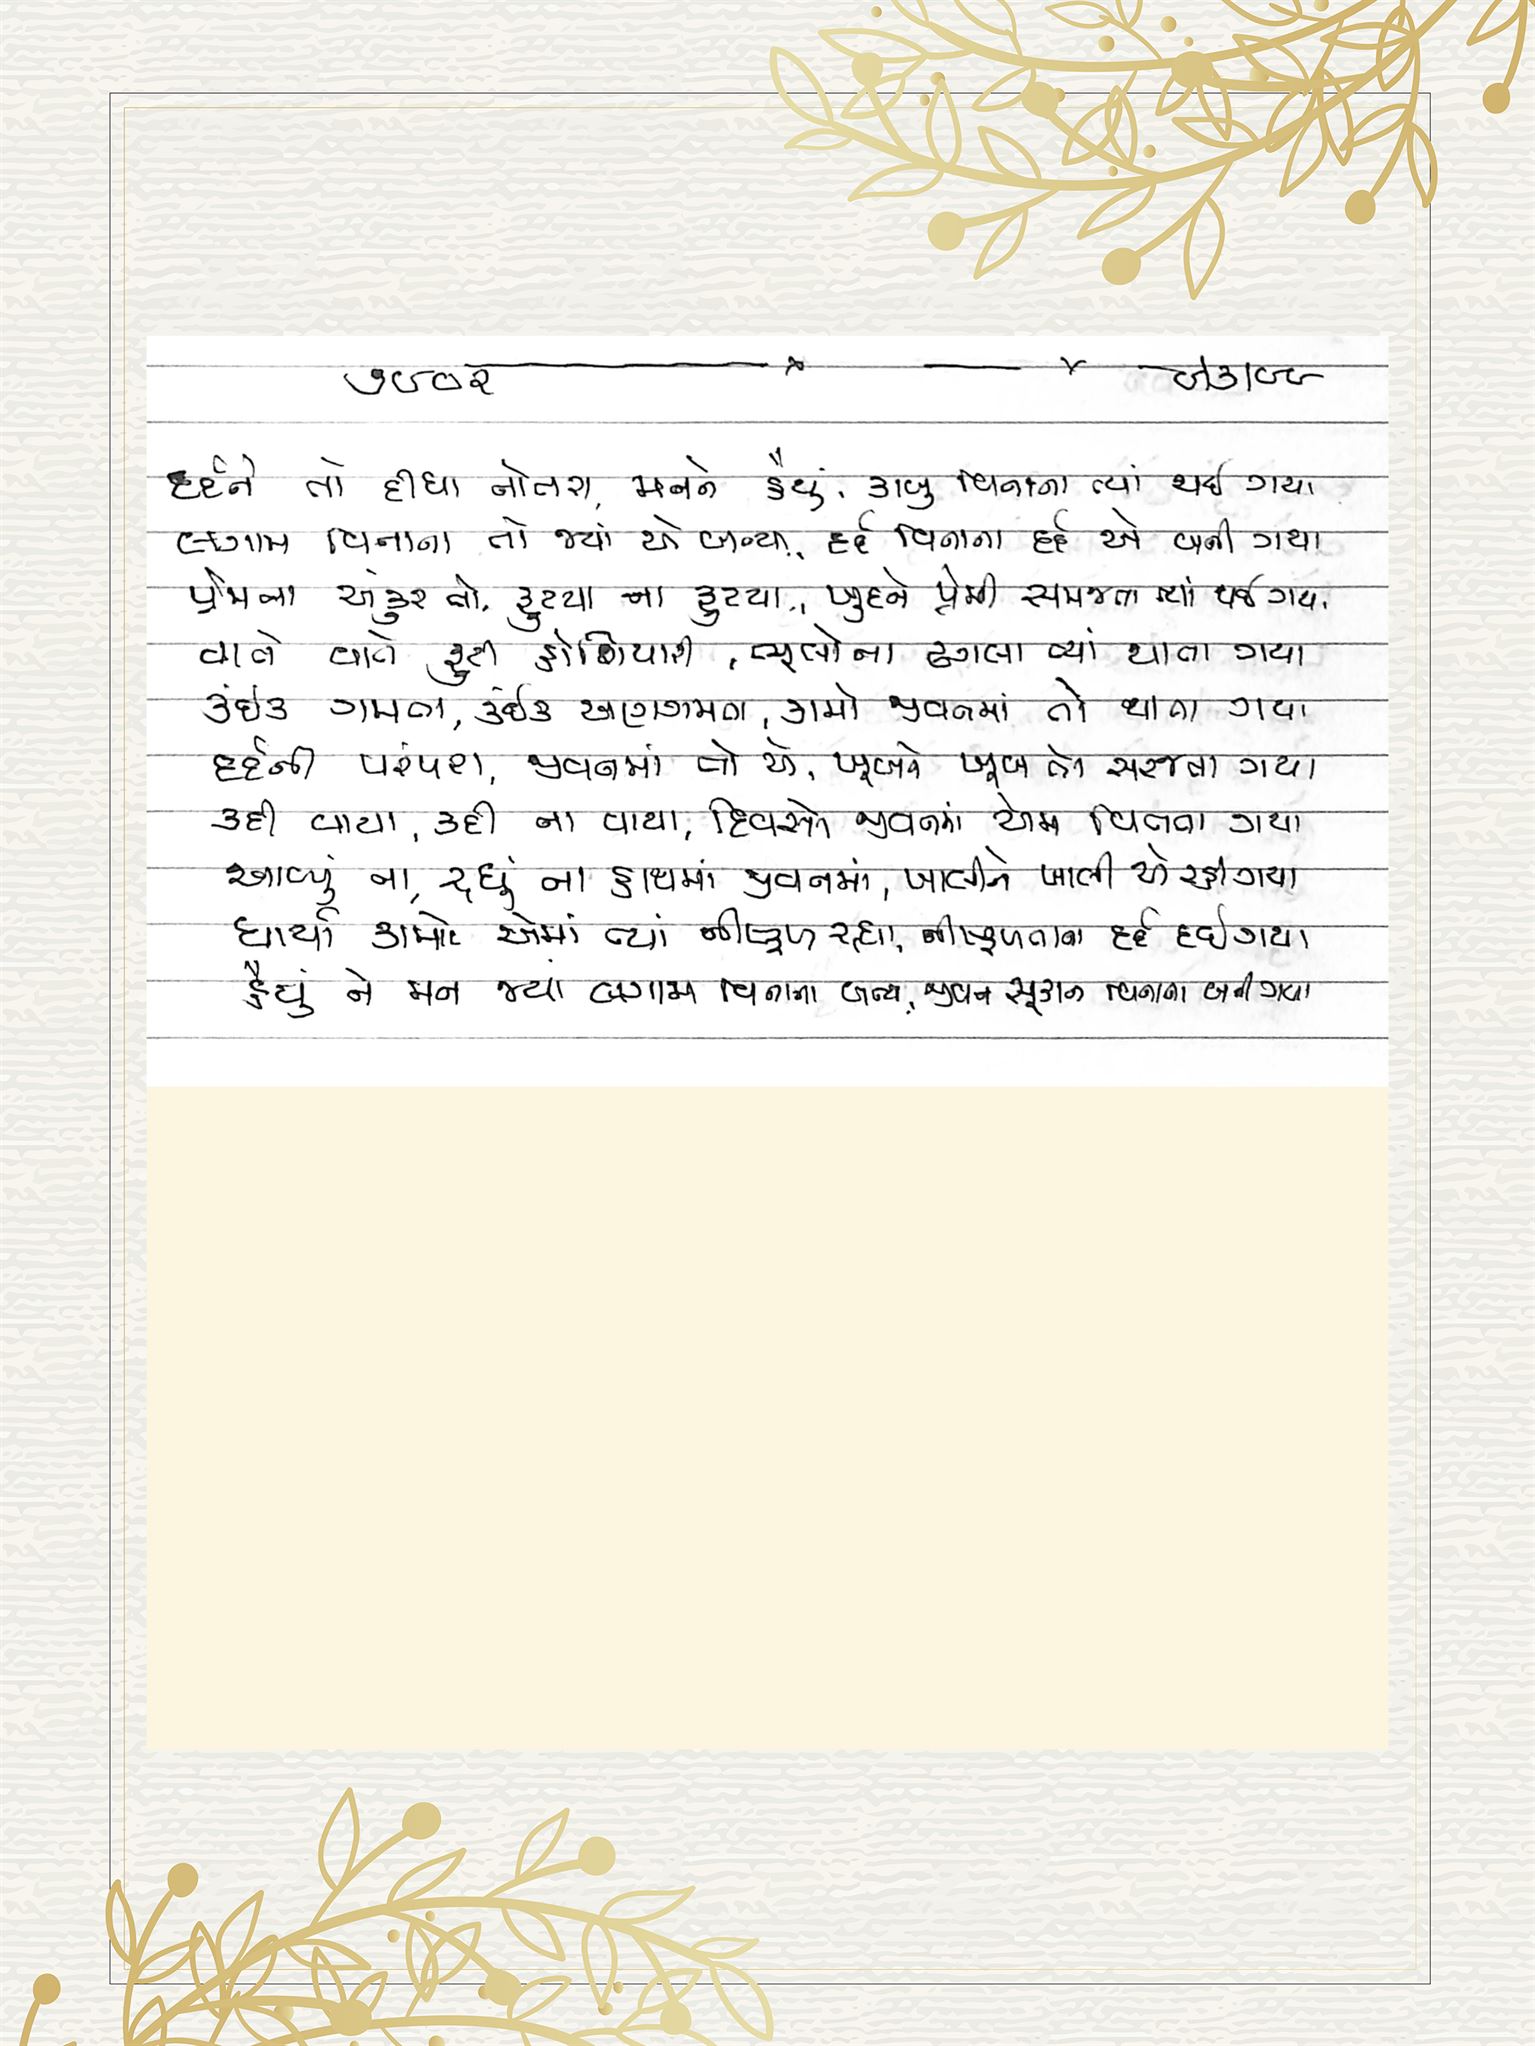 દર્દને તો દીધા નોતરા, મનને હૈયું, કાબુ વિનાના ત્યાં થઈ ગયા
લગામ વિનાના તો જ્યાં એ બન્યા, હદ વિનાના દર્દ એ બની ગયા
પ્રેમના અંકુર તો, ફુટયા ના ફુટયા, ખુદને પ્રેમી સમજતા ત્યાં થઈ ગયા
વાતે વાતે ફુટી હોશિયારી, ભૂલોના ઢગલા ત્યાં થાતા ગયા
કંઈક ગમતા, કંઈક અણગમતા, કામો જીવનમાં તો થાતા ગયા
દર્દની પરંપરા, જીવનમાં તો એ, ખૂબને ખૂબ તો સરજતા ગયા
કદી વાયા, કદી ના વાયા, દિવસો જીવનમાં એમ વિતતા ગયા
આવ્યું ના, રહ્યું ના હાથમાં જીવનમાં, ખાલીને ખાલી એ રહી ગયા
ધાર્યા કામો એમાં જ્યાં નીષ્ફળ રહ્યા, નીષ્ફળતાના દર્દ દઈ ગયા
હૈયું ને મન જ્યાં લગામ વિનાના બન્યા, જીવન સૂકાન વિનાના બની ગયા